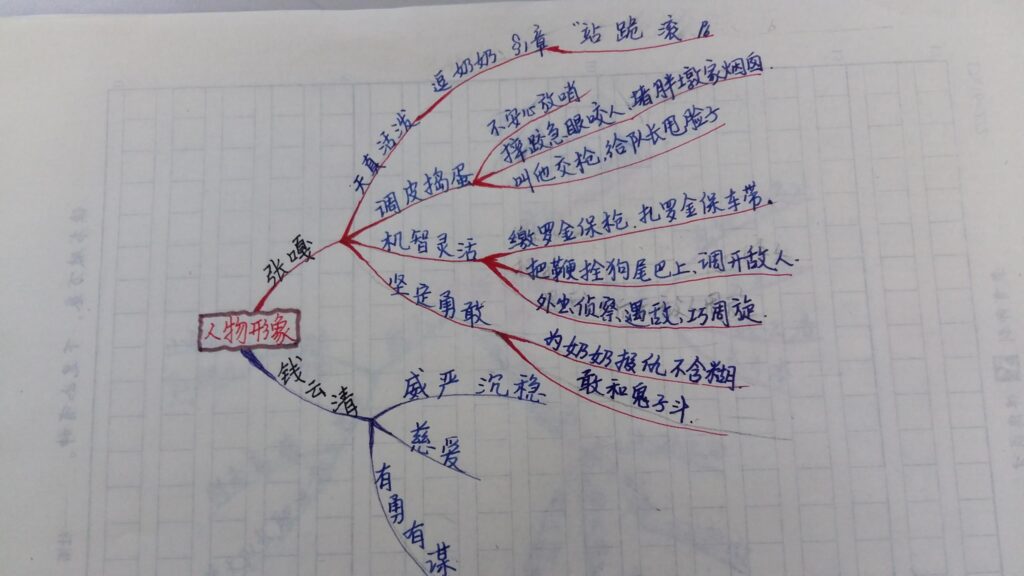 逗奶奶 引章 "站 跪 滚
天真活泼
不安心放哨
摔跤急眼咬人、堵胖墩家烟囱.
叫他交枪、给队长甩脸子
调皮捣蛋
缴罗金保枪、扎罗金保车带。
机智灵活
把鞭拴狗尾巴上、调开敌人.
外出侦察、遇敌、巧周旋.
坚定勇敢
为奶奶报仇不含糊.
敢和鬼子斗.
张嘎
人物形象
钱云清
威严沉稳
慈爱
有勇有谋